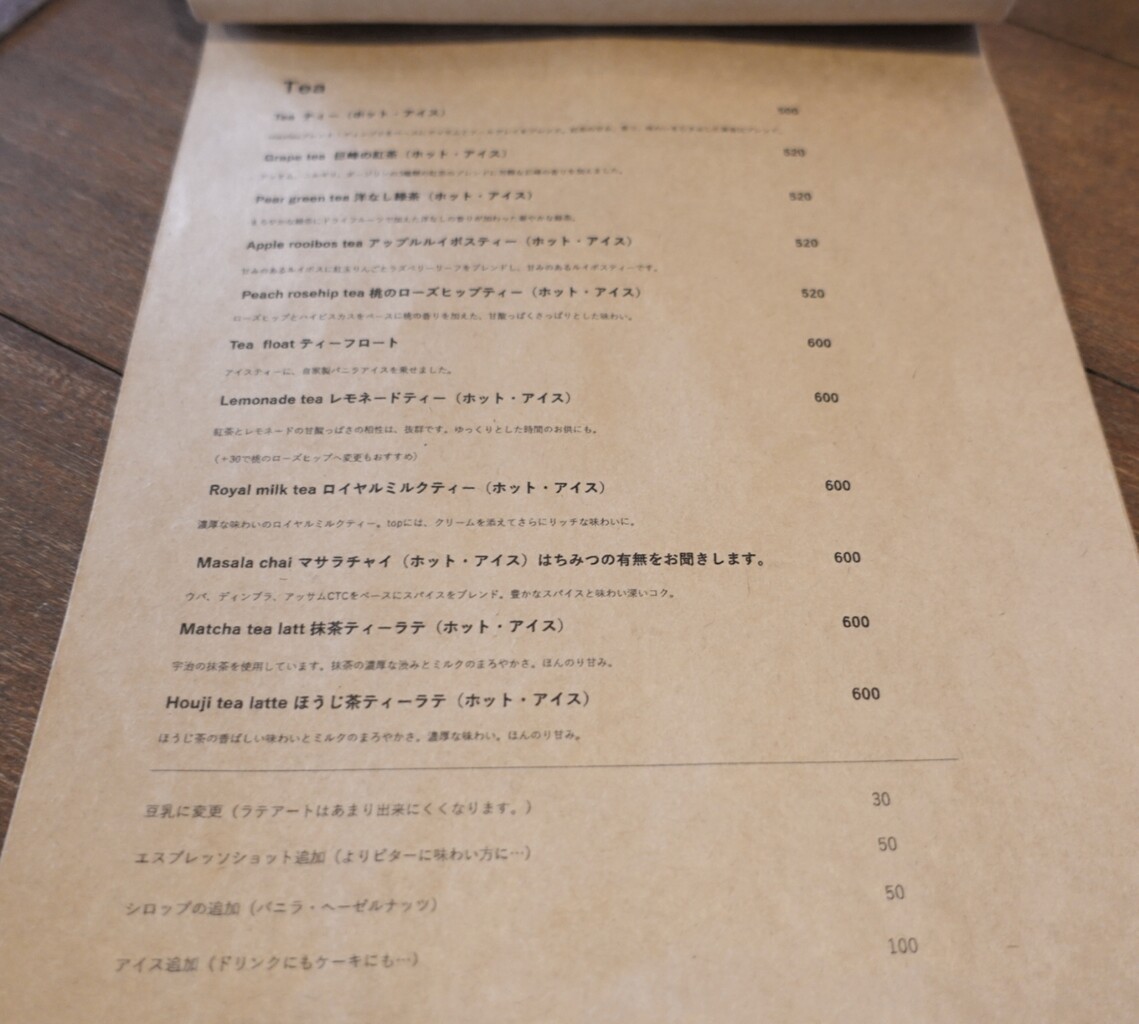 Tea
Tea ティー（ホット・アイス） 500
Grape tea 巨峰の紅茶（ホット・アイス） 520
Pear green tea 洋なし緑茶（ホット・アイス） 520
まろやかな緑茶にドライフルーツで加えた洋なしの香りが加わった華やかな緑茶。
Apple rooibos tea アップルルイボスティー（ホット・アイス） 520
甘みのあるルイボスに紅玉りんごとラズベリーリーフをブレンドし、甘みのあるルイボスティーです。
Peach rosehip tea 桃のローズヒップティー（ホット・アイス） 520
ローズヒップとハイビスカスをベースに桃の香りを加えた、甘酸っぱくさっぱりとした味わい。
Tea float ティーフロート 600
アイスティーに、自家製バニラアイスを乗せました。
Lemonade tea レモネードティー（ホット・アイス） 600
紅茶とレモネードの甘酸っぱさの相性は、抜群です。ゆっくりとした時間のお供にも。
（＋30で桃のローズヒップへ変更もおすすめ）
Royal milk tea ロイヤルミルクティー（ホット・アイス） 600
濃厚な味わいのロイヤルミルクティー。topには、クリームを添えてさらにリッチな味わいに。
Masala chai マサラチャイ（ホット・アイス）はちみつの有無をお聞きします。 600
ウバ、ディンブラ、アッサムCTCをベースにスパイスをブレンド。豊かなスパイスと味わい深いコク。
Matcha tea latt 抹茶ティーラテ（ホット・アイス） 600
宇治の抹茶を使用しています。抹茶の濃厚な渋みとミルクのまろやかさ。ほんのり甘み。
Houji tea latte ほうじ茶ティーラテ（ホット・アイス） 600
ほうじ茶の香ばしい味わいとミルクのまろやかさ。濃厚な味わい。ほんのり甘み。
豆乳に変更（ラテアートはあまり出来にくくなります。） 30
エスプレッソショット追加（よりビターに味わい方に…） 50
シロップの追加（バニラ・ヘーゼルナッツ） 50
アイス追加（ドリンクにもケーキにも…） 100